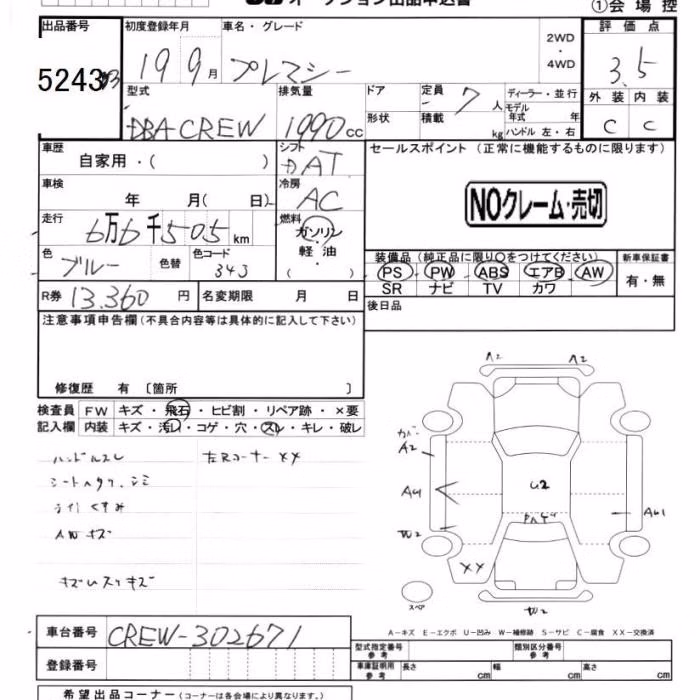 オークション出品申込書
①会場控
出品番号 初度登録年月 車名・グレード 2WD・4WD 評価点
5243 19 9月 プレマシー 3.5
型式 排気量 ドア 定員 7人 ディーラー・並行 外装 内装
DBA CREW 1990cc 形状 積載 kg モデル年式 年 C C
ハンドル 左・右
車歴 自家用・( ) シフト DAT セールスポイント (正常に機能するものに限ります)
車検 年 月( 日) 冷房 AC
NOクレーム・売切
走行 6万6千505km 燃料 ガソリン・軽油・( )
色 ブルー 色替 色コード 343
装備品(純正品に限り○をつけてください) 新車保証書
PS PW ABS エアB AW 有・無
SR ナビ TV カワ
R券 13,360円 名変期限 月 日 後日品
注意事項申告欄(不具合内容等は具体的に記入して下さい)
修復歴 有〔箇所 〕
検査員 FW キズ・飛石・ヒビ割・リペア跡・×要
記入欄 内装 キズ・汚レ・コゲ・穴・スレ・キレ・破レ
ハンドルスレ 左Rコーナー XX
ライトくすみ
A2 A2
A2
U2
W2
XX
スペア
W2
A-キズ E-エクボ U-凹み W-補修跡 S-サビ C-腐食 XX-交換済
車台番号 CREW-302671
登録番号
型式指定番号 参考 類別区分番号 参考
車庫証明用 参考 長さ cm 幅 cm 高さ cm
希望出品コーナー (コーナーは各会場により異なります。)